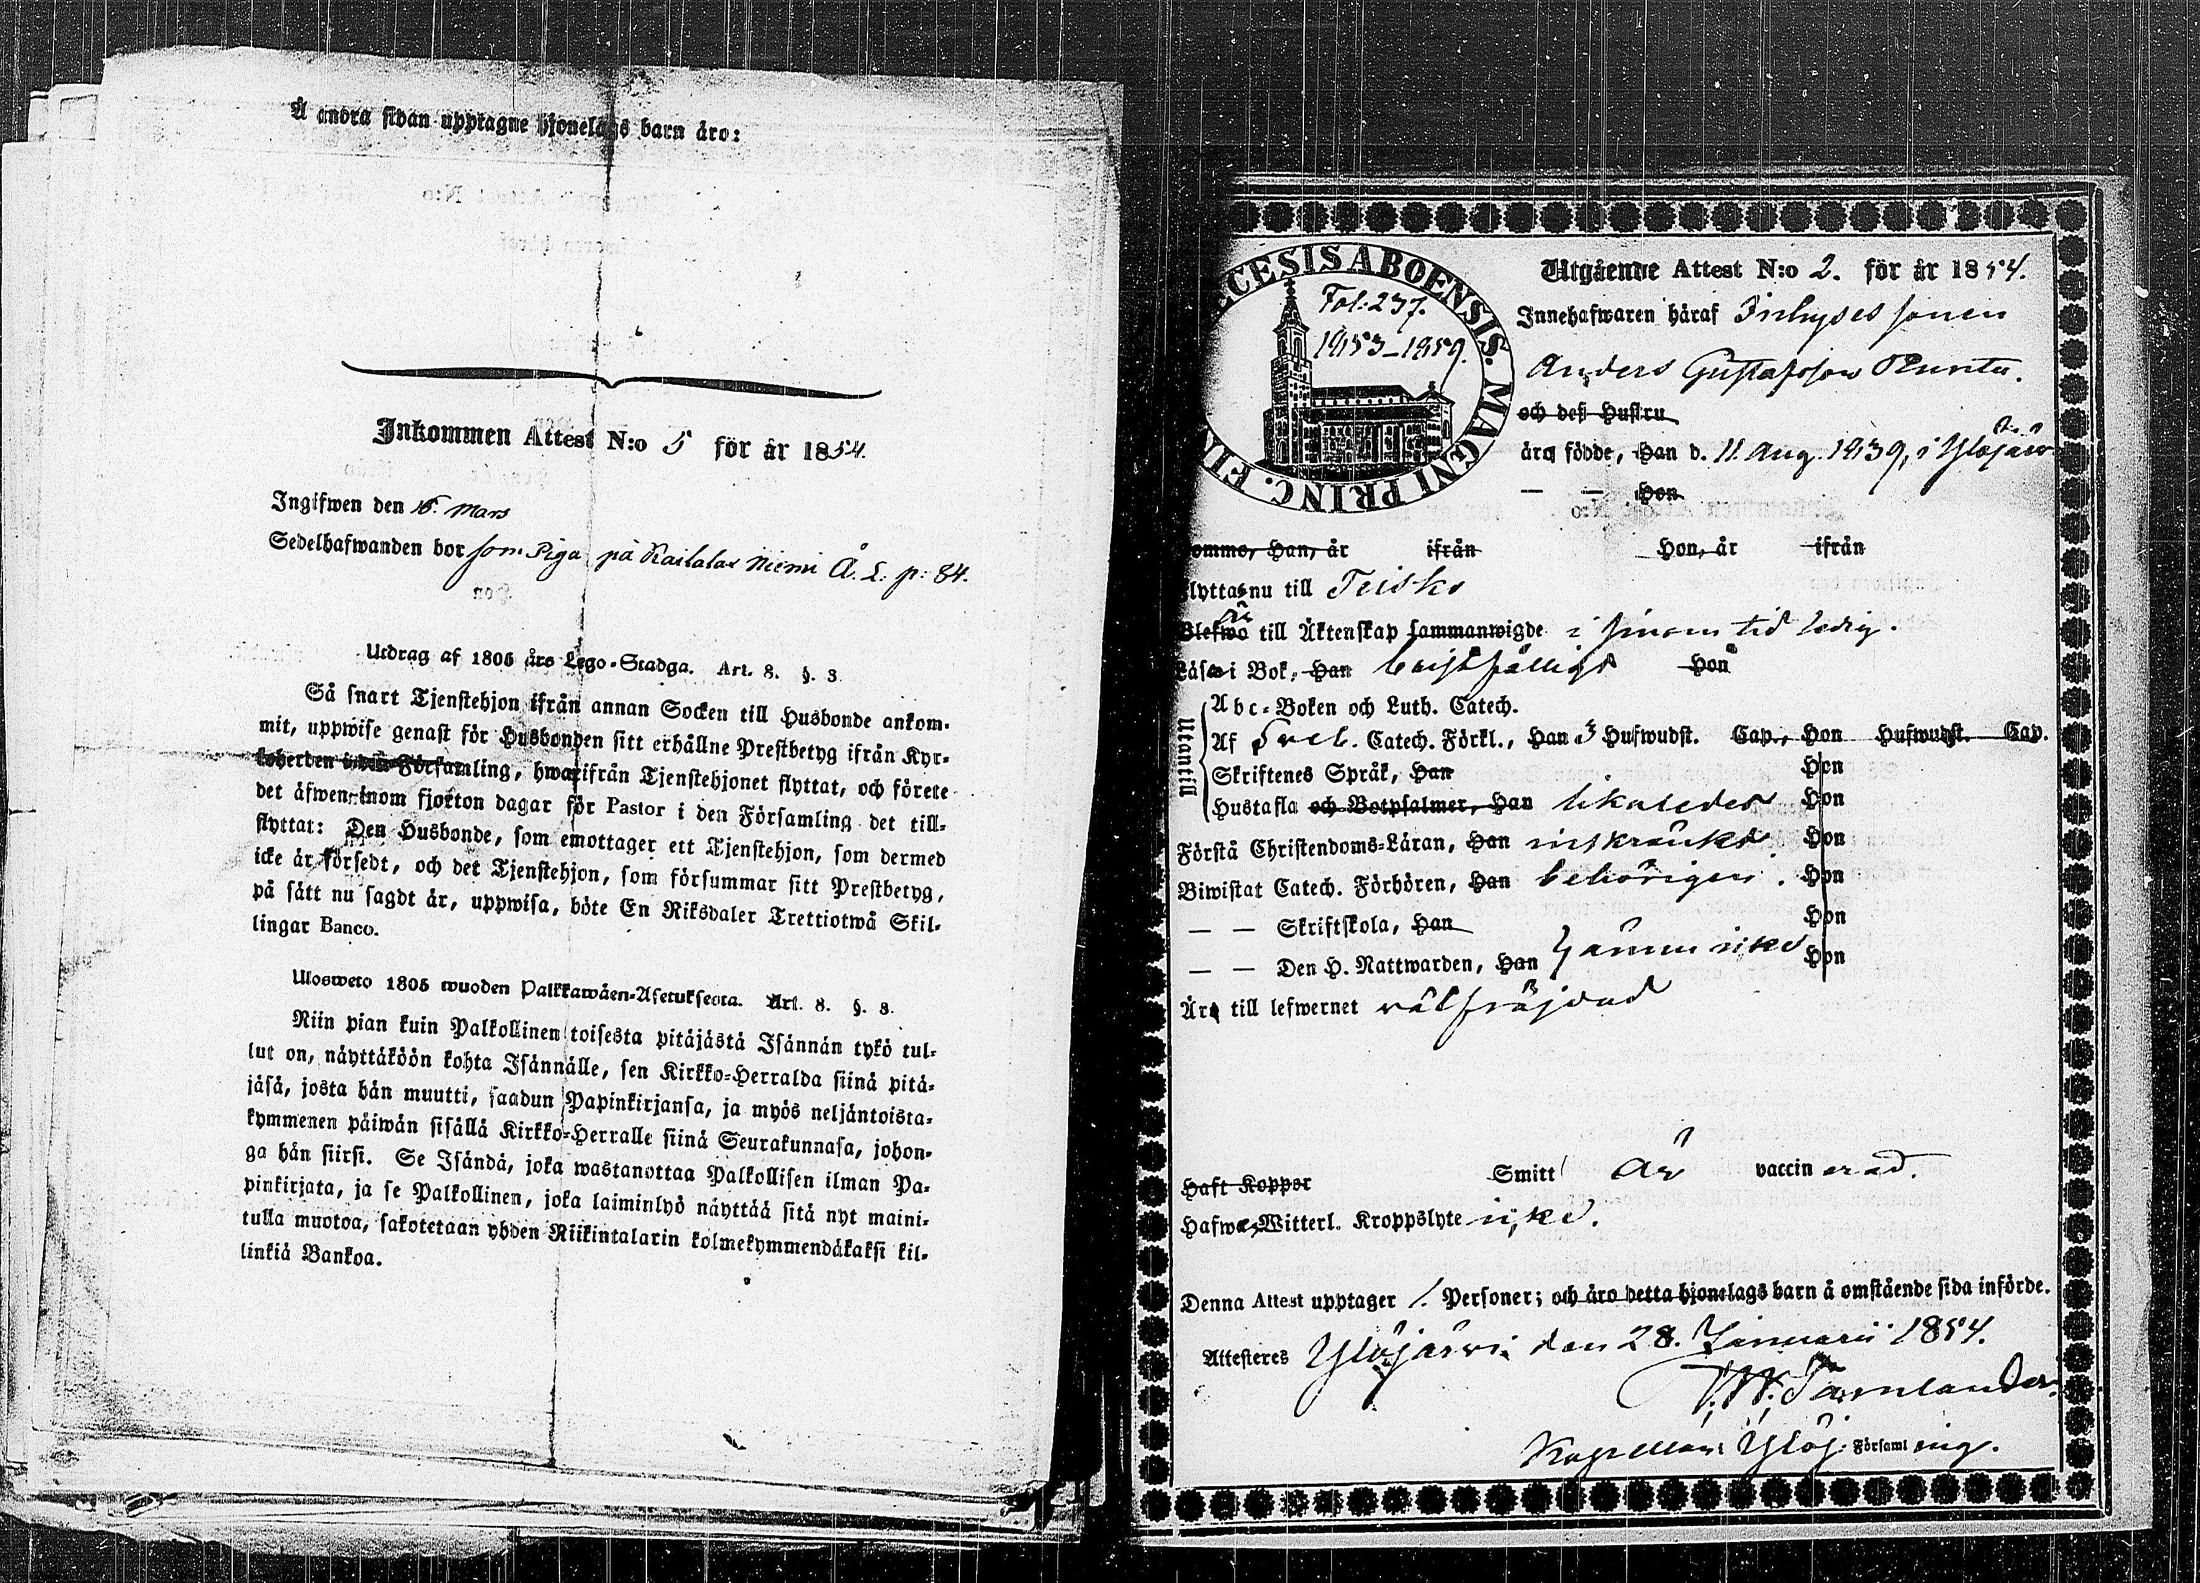 Å andra sidan upptagne hjonelags barn äro:
Inkommen Attest N:o 5 för år 1854.
Ingifwen den 16. Mars
Sedelhafwanden bor som Piga på Kailalas Niemi Å. L. p: 84.
Utdrag af 1805 års Lego-Stadga. Art. 8. §. 3
Så snart Tjenstehjon ifrån annan Socken till Husbonde ankom-
mit, uppwise genast för Husbonden sitt erhållne Prestbetyg ifrån Kyr-
koherden i den Församling, hwarifrån Tjenstehjonet flyttat, och förete
det äfwen inom fjorton dagar för Pastor i den Församling det till-
flyttat: Den Husbonde, som emottager ett Tjenstehjon, som dermed
icke är försedt, och det Tjenstehjon, som försummar sitt Prestbetyg,
på sätt nu sagdt är, uppwisa, böte En Riksdaler Trettiotwå Skil-
lingar Banco.
Ulosweto 1805 wuoden Palkkawäen-Asetuksesta. Art. 8. §. 3.
Niin pian kuin Palkollinen toisesta pitäjästä Isännän tykö tul-
lut on, näyttäköön kohta Isännälle, sen Kirkko-Herralda siinä pitä-
jäsä, josta hän muutti, saadun Papinkirjansa, ja myös neljäntoista-
kymmenen päiwän sisällä Kirkko-Herralle siinä Seurakunnasa, johon-
ga hän siirsi. Se Isändä, joka wastanottaa Palkollisen ilman Pa-
pinkirjata, ja se Palkollinen, joka laiminlyö näyttää sitä nyt maini-
tulla muotoa, sakotetaan yhden Riikintalarin kolmekymmendäkaksi kil-
linkiä Bankoa.
CESIS ABOENSIS. MAGNI PRINC. FIN
Fol: 237.
1853-1859.
Utgående Attest N:o 2. för år 1854.
Innehafwaren häraf Inhyses sonen
Anders Gustafsson
och deß Hustru
äro födde, Han d. 11. Aug. 1839, i Ylöjärvi
— — Hon
Komme, Han, år ifrån Hon, år ifrån
Flyttas nu till Teisko
Blefwo till Äktenskap sammanwigde i sinom tid ledig.
Läsa i Bok, Han Hon
Utantill
Abc-Boken och Luth. Catech.
Af Sveb. Catech. Förkl., Han 3 Hufwudst. Cap., Hon Hufwudst. Cap.
Skriftenes Språk, Han Hon
Hustafla och Botpsalmer, Han likaledes Hon
Förstå Christendoms-Läran, Han inskränkt Hon
Biwistat Catech. Förhören, Han behörigen. Hon
— — Skriftskola, Han Hon
— — Den H. Nattwarden, Han Hon
Äro till lefwernet välfräjdad
Haft Koppor Smitt är vaccinerad.
Hafwa Witterl. Kroppslyte icke.
Denna Attest upptager 1. Personer; och äro detta hjonelags barn å omstående sida införde.
Attesteres Ylöjärvi den 28. Januarii 1854.
Kapellan i Ylöj. Församling.